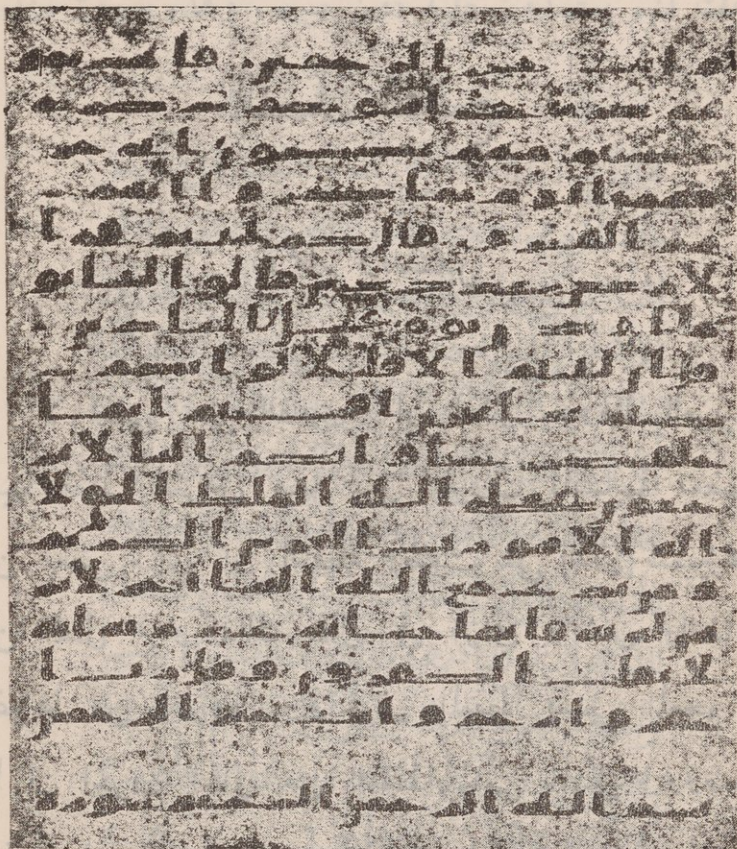 وانت خير الرحمين فاتخذتمو
هم سخريا حتى انسوكم ذكرى و
كنتم منهم تضحكون انى جز
يتهم اليوم بما صبروا انهم
هم الفائزون قل كم لبثتم فى ا
لارض عدد سنين قالوا لبثنا يو
ما او بعض يوم فسل العادين
قل ان لبثتم الا قليلا لو انكم
كنتم تعلمون افحسبتم انما
خلقنكم عبثا وانكم الينا لا تر
جعون فتعلى الله الملك الحق لا
اله الا هو رب العرش الكريم
ومن يدع مع الله الها اخر لا بر
هن له به فانما حسابه عند ربه انه
لا يفلح الكفرون وقل رب ا
غفر وارحم وانت خير الرحمين
بسم الله الرحمن الرحيم سورة